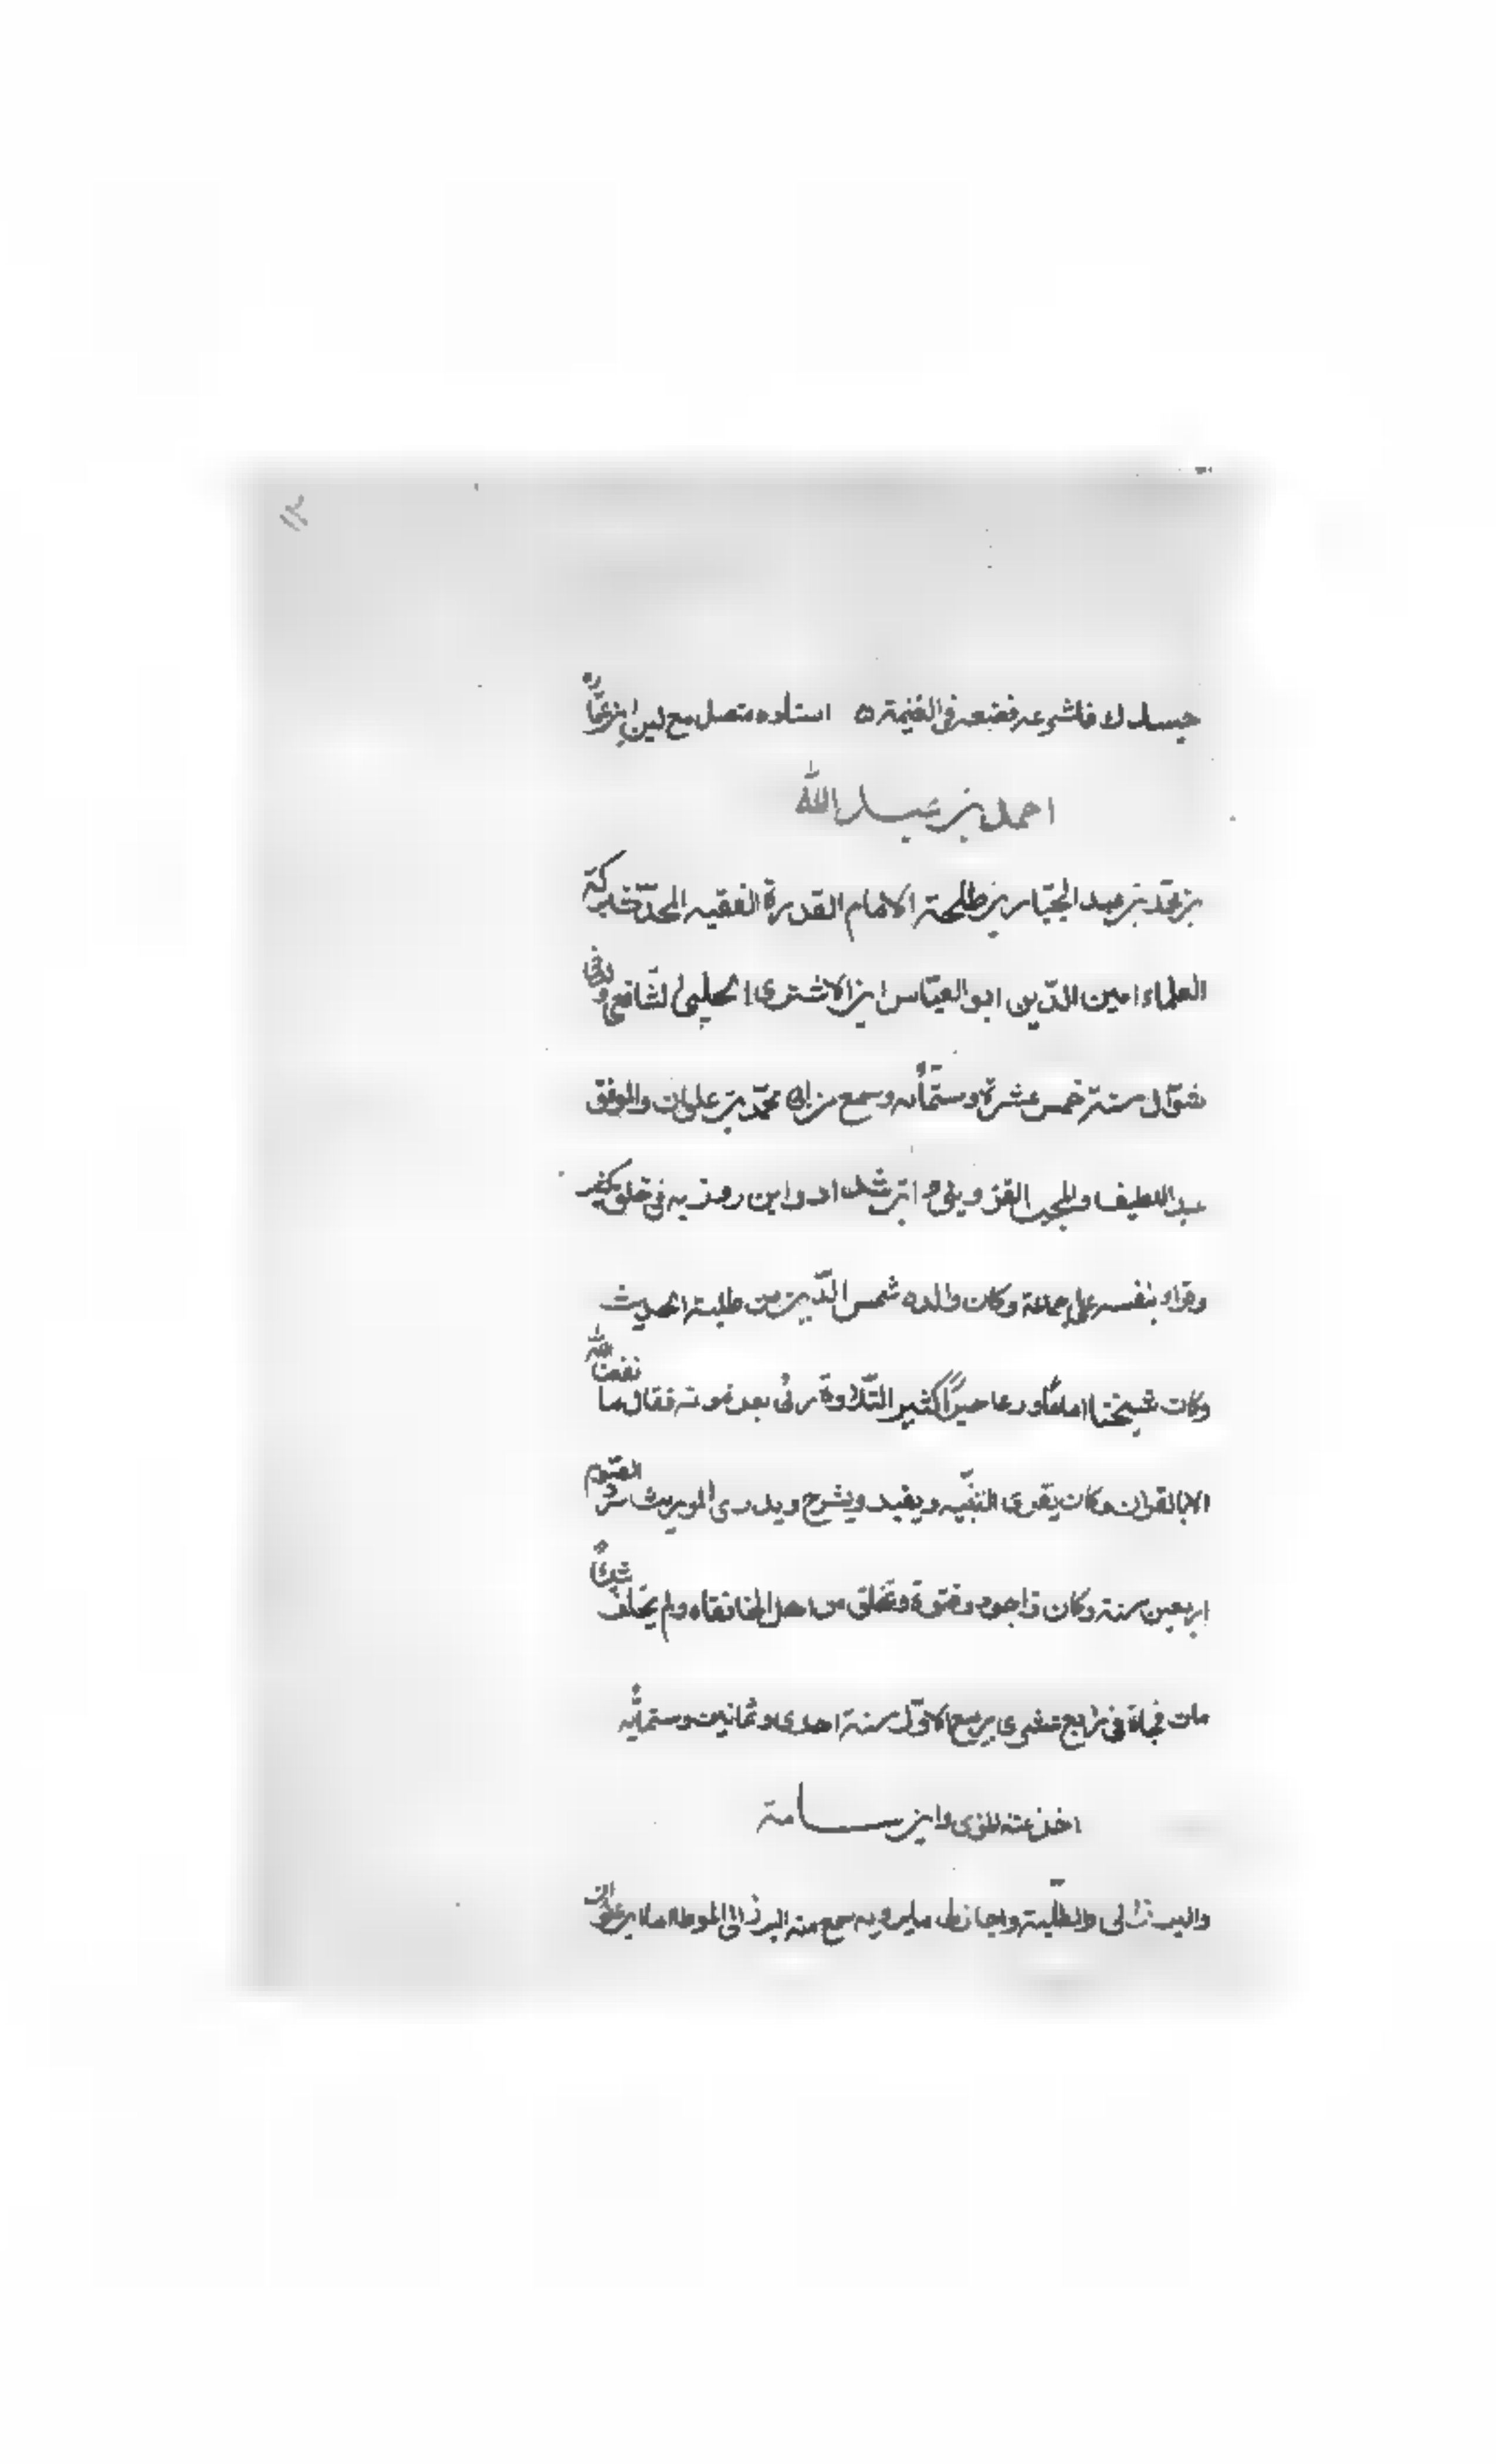 ١٢
فقسمه في الغنيمة ٥ اسناده متصل مع لين ابن عمارة
احمد بن عبد الله
بن محمد بن عبد الجبار بن طلحة الامام القدوة الفقيه المحدّث بركة
العلماء امين الدّين ابو العبّاس ابن الاشترى الحلبى الشافعى ولد فى
شوّال سنة خمس عشرة وستّمائه وسمع من ابى محمّد بن علوان والموفق
عبد اللطيف والمجب القزوينى و ابن شداد وابن روزبه فى خلق كثير
وقراء بنفسه على جماعة وكان والده شمس الدّين من طلبة الحديث
وكان شيخنا اماماً ورعا خيراً كثير التّلاوة رئى بعد موته فقال ما نفعنا الله
الا بالقران وكان يقوى التنبيه ويفيد ويشرح الصّوم
اربعين سنة وكان ذا جود وفتوّة وتخلق من اهل الخانقاه ولم يخلف شيئاً
مات فجاة فى رابع عشرى ربيع الاوّل سنة احدى وثمانين وستمائه
اخذ عنه النووى وابن سامة
والطلبة واجاز لى ما يرويه سمع منه البرزالى الموطا انا ابن علوان